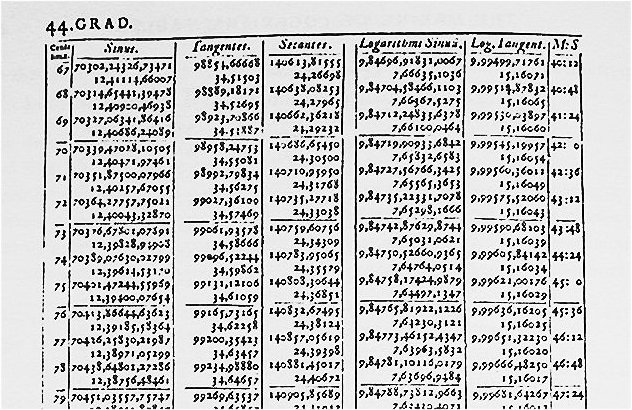 44.GRAD.
Sinus. Tangentes. Secantes. Logarithmi Sinuū. Log. Tangent. M:S
67 70302,24326,73471 98854,66668 140613,81555 9,84696,91831,0067 9,99499,71761 40:12
12,41114,66007 34,51503 24,26698 7,66635,1036 15,16071
68 70314,65441,39478 98889,18171 140638,08253 9,84704,58466,1103 9,99514,87832 40:48
12,40900,46938 34,52695 24,27965 7,66367,5275 15,16065
69 70327,06341,86416 98923,70866 140662,36218 9,84712,24833,6378 9,99530,03897 41:24
12,40686,24089 34,53887 24,29232 7,66100,0464 15,16060
70 70339,47028,10505 98958,24753 140686,65450 9,84719,90933,6842 9,99545,19957 42: 0
12,40471,97461 34,55081 24,30500 7,65832,6583 15,16054
71 70351,87500,07966 98992,79834 140710,95950 9,84727,56766,3425 9,99560,36011 42:36
12,40257,67055 34,56275 24,31768 7,65565,3653 15,16049
72 70364,27757,75021 99027,36109 140735,27718 9,84735,22331,7078 9,99575,52060 43:12
12,40043,32870 34,57469 24,33038 7,65298,1666 15,16043
73 70376,67801,07891 99061,93578 140759,60756 9,84742,87629,8744 9,99590,68103 43:48
12,39828,94908 34,58666 24,34309 7,65031,0621 15,16039
74 70389,07630,02799 99096,52244 140783,95065 9,84750,52660,9365 9,99605,84142 44:24
34,59862 24,35579 7,64764,0514 15,16034
75 70401,47244,55969 99131,12106 140808,30644 9,84758,17424,9879 9,99621,00176 45: 0
12,39400,07654 34,61059 24,36851 7,64497,1347 15,16029
76 70413,86644,63623 99165,73165 140832,67495 9,84765,81922,1226 9,99636,16205 45:36
12,39185,58364 34,62258 24,38124 7,64230,3121 15,16025
77 70426,25830,21987 99200,35423 140857,05619 9,84773,46152,4347 9,99651,32230 46:12
12,38971,05299 34,63457 24,39398 7,63963,5832 15,16020
78 70438,64801,27286 99234,98880 140881,45017 9,84781,10116,0179 9,99666,48250 46:48
12,38756,48461 34,64657 24,40672 7,63696,9484 15,16017
79 70451,03557,75747 99269,63537 140905,85689 9,84788,73812,9663 9,99681,64267 47:24